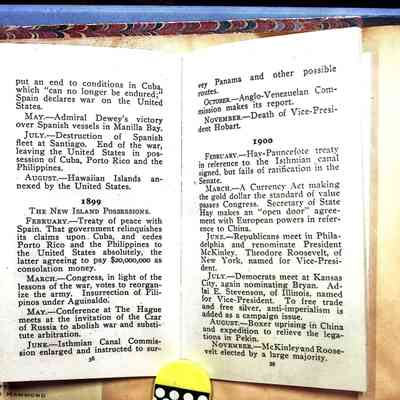 put an end to conditions in Cuba,
which "can no longer be endured;"
Spain declares war on the United
States.
MAY.—Admiral Dewey's victory
over Spanish vessels in Manilla Bay.
JULY.—Destruction of Spanish
fleet at Santiago. End of the war,
leaving the United States in pos-
session of Cuba, Porto Rico and the
Philippines.
AUGUST.—Hawaiian Islands an-
nexed by the United States.
1899
THE NEW ISLAND POSSESSIONS.
FEBRUARY.—Treaty of peace with
Spain. That government relinquishes
its claims upon Cuba, and cedes
Porto Rico and the Philippines to
the United States absolutely, the
latter agreeing to pay $20,000,000 as
consolation money.
MARCH.—Congress, in light of the
lessons of the war, votes to reorgan-
ize the army. Insurrection of Filip-
pinos under Aguinaldo.
MAY.—Conference at The Hague
meets at the invitation of the Czar
of Russia to abolish war and substi-
tute arbitration.
JUNE.—Isthmian Canal Commis-
sion enlarged and instructed to sur-
vey Panama and other possible
routes.
OCTOBER.—Anglo-Venezuelan Com-
mission makes its report.
NOVEMBER.—Death of Vice-Presi-
dent Hobart.
1900
FEBRUARY.—Hay-Pauncefote treaty
in reference to the Isthmian canal
signed, but fails of ratification in the
Senate.
MARCH.—A Currency Act making
the gold dollar the standard of value
passes Congress. Secretary of State
Hay makes an "open door" agree-
ment with European powers in refer-
ence to China.
JUNE.—Republicans meet in Phila-
delphia and renominate President
McKinley. Theodore Roosevelt, of
New York, named for Vice-Presi-
dent.
JULY.—Democrats meet at Kansas
City, again nominating Bryan. Ad-
lai E. Stevenson, of Illinois, named
for Vice-President. To free trade
and free silver, anti-imperialism is
added as a campaign issue.
AUGUST.—Boxer uprising in China
and expedition to relieve the lega-
tions in Pekin.
NOVEMBER.—McKinley and Roose-
velt elected by a large majority.
HAMMOND